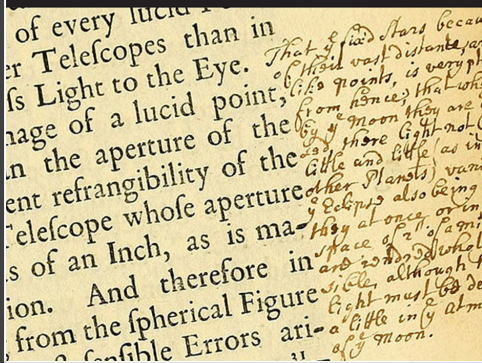 of every lucid
er Teleſcopes than in
ſs Light to the Eye.
mage of a lucid point,
n the aperture of the
ent refrangibility of the
Teleſcope whoſe aperture
s of an Inch, as is ma-
ion. And therefore in
from the ſpherical Figure
ſenſible Errors ari-
That yͤ fixed Stars becau
of their vast distance, a
like points, is very p
from hence; that wh
by yͤ moon they are
there light not
little and little (as in
other Planets) vani
yͤ Eclipse also being
they at once, or in
space of 1" of a mi
are rendred whol
sible, although
light must be de
a little in by atm
of yͤ moon.